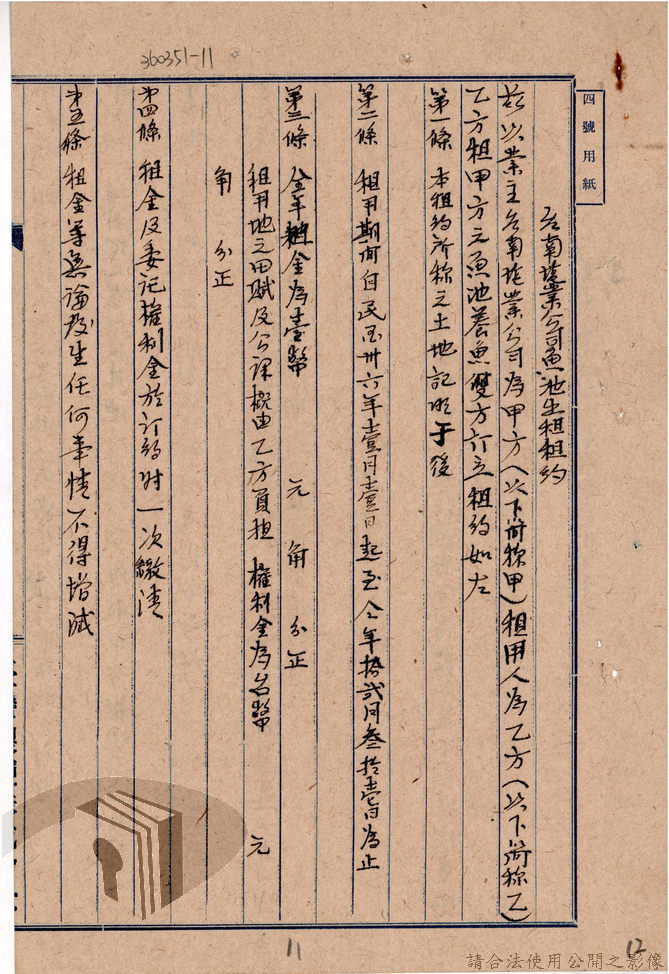 360351-11
四號用紙
台南鹽業公司魚池出租租約
茲以業主台南鹽業公司為甲方(以下簡称甲)租用人為乙方(以下簡称乙)
乙方租甲方之魚池養魚雙方訂立租約如左
第一條 本租約所称之土地記明于後
第二條 租用期间自民国卅六年壹月壹日起至今年拾弍月叁拾壹日為止
第三條 全年租金為臺幣 元 角 分正
租用地之田賦及公課概由乙方負担 權利金為台幣 元
角 分正
第四條 租金及委託權利金於訂約时一次繳清
第五條 租金等無論发生任何事情不得增減
11
12
請合法使用公開之影像